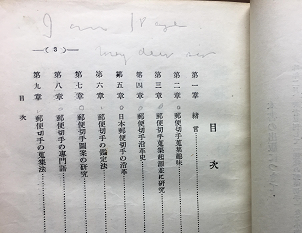 I am 18 age
—( 3 )—
my dear sir
目次
第一章 緒言
第二章 郵便切手蒐集趣味
第三章 郵便切手蒐集起源並に研究
第四章 郵便切手沿革史
第五章 日本郵便切手の沿革
第六章 郵便切手の鑑定法
第七章 郵便切手圖案の研究
第八章 郵便切手の専門語
第九章 郵便切手の蒐集法
目次